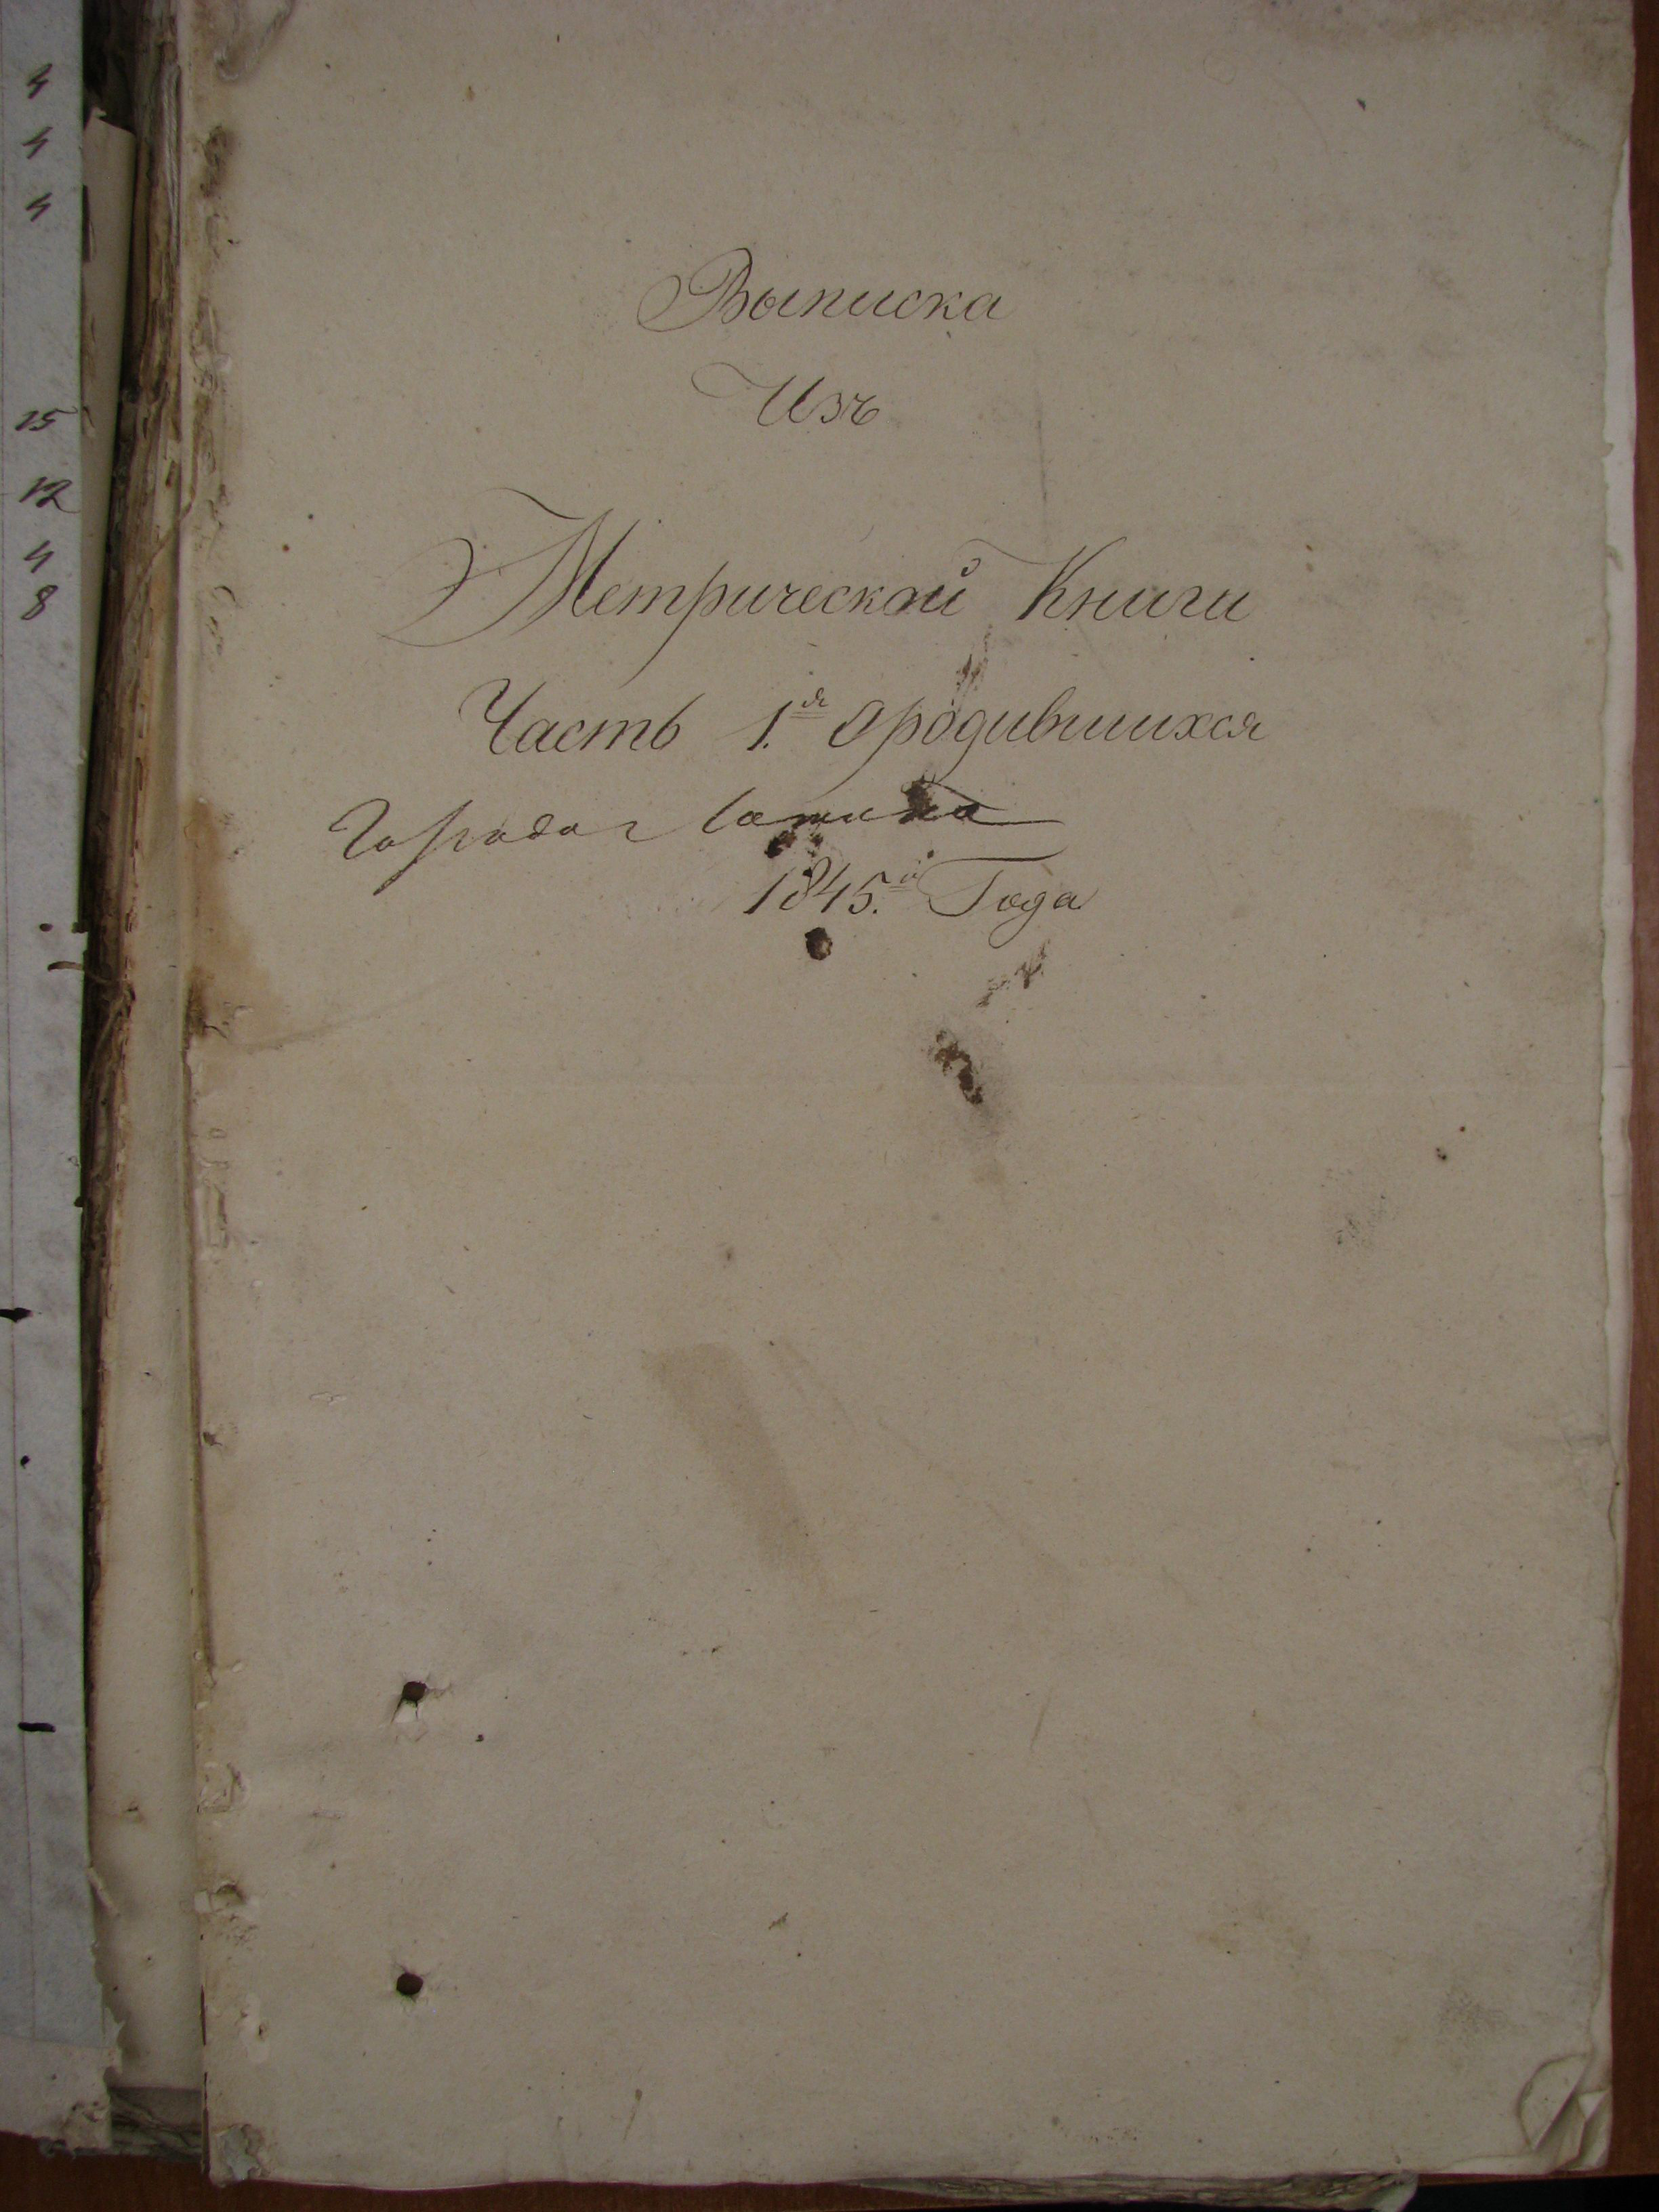 4
4
4
15
12
4
8
Выписка
Изъ
Метрической Книги
Часть 1.я ородившихся
Города
1845.й Года